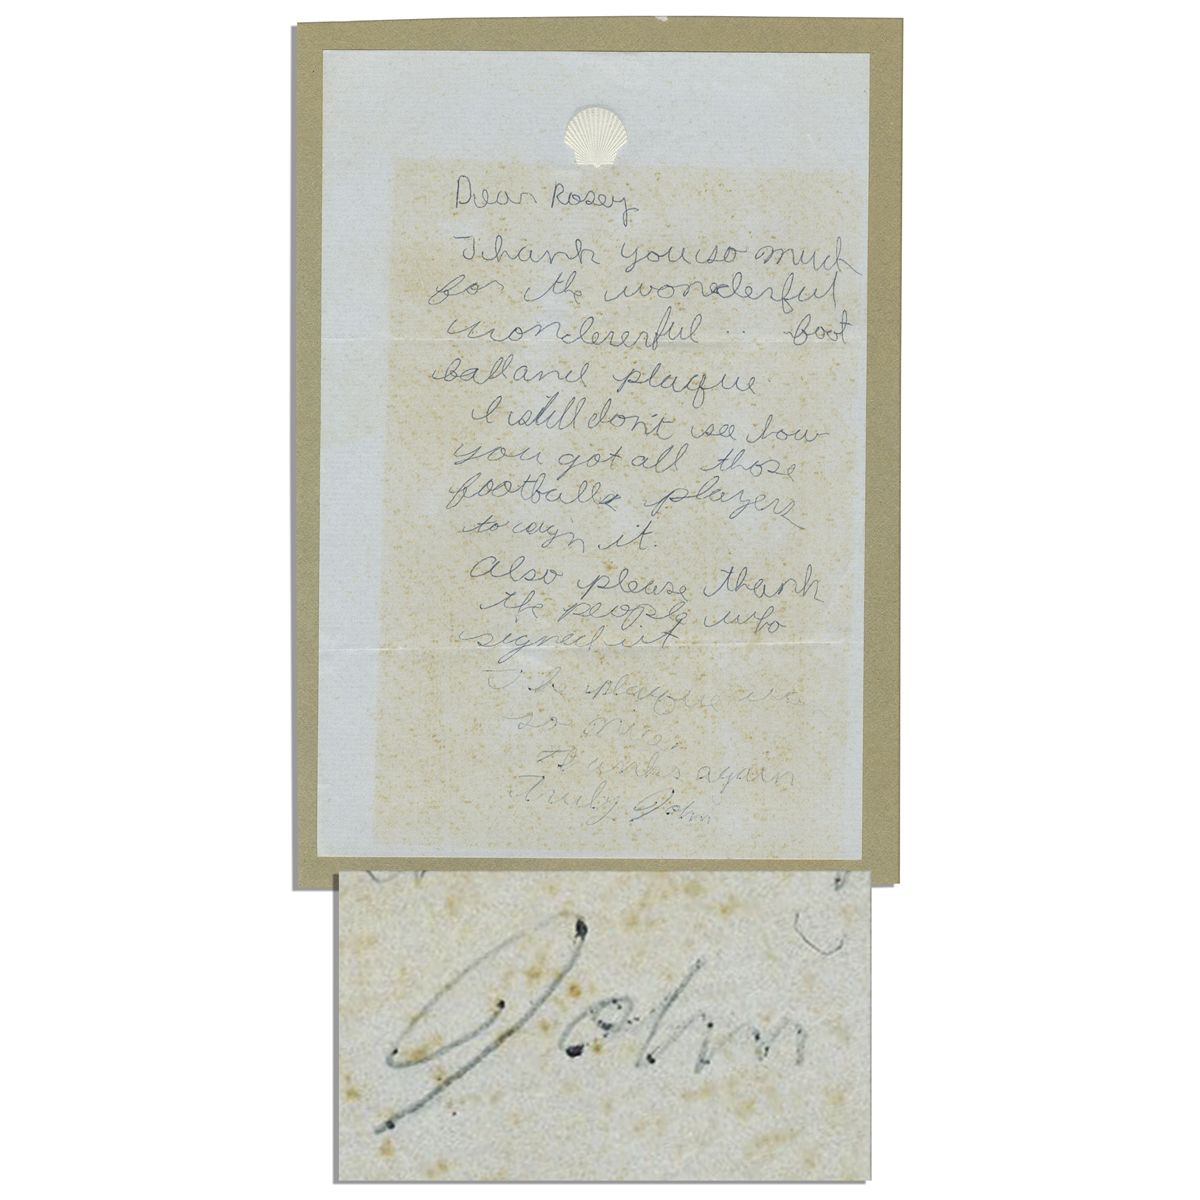 Dear Rosey
Thank you so much
for the wonderful
wondererful .. foot
ball and plaque
I still don't see how
you got all those
footballs players
to sign it.
Also please thank
the people who
signed it
The plaque was
so nice.
Thanks again
Truly John
John